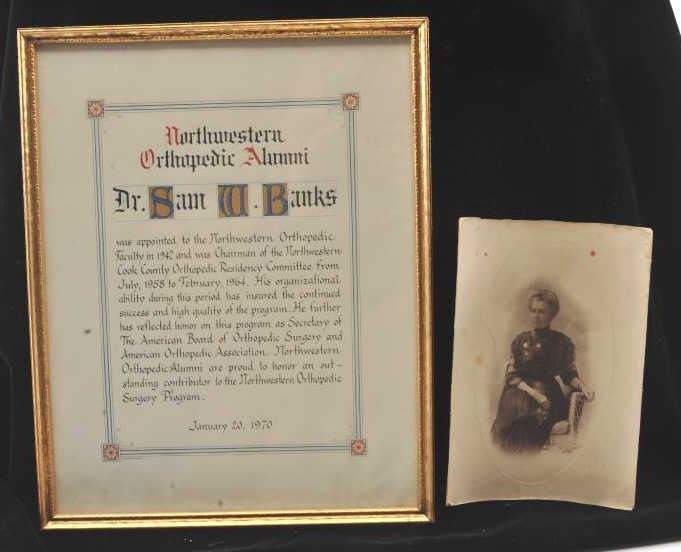 Northwestern
Orthopedic Alumni
Dr. Sam W. Banks
was appointed to the Northwestern Orthopedic
Faculty in 1942 and was Chairman of the Northwestern-
Cook County Orthopedic Residency Committee from
July, 1958 to February, 1964. His organizational
ability during this period has insured the continued
success and high quality of the program. He further
has reflected honor on this program as Secretary of
The American Board of Orthopedic Surgery and
American Orthopedic Association. Northwestern
Orthopedic Alumni are proud to honor an out-
standing contributor to the Northwestern Orthopedic
Surgery Program.
January 20, 1970